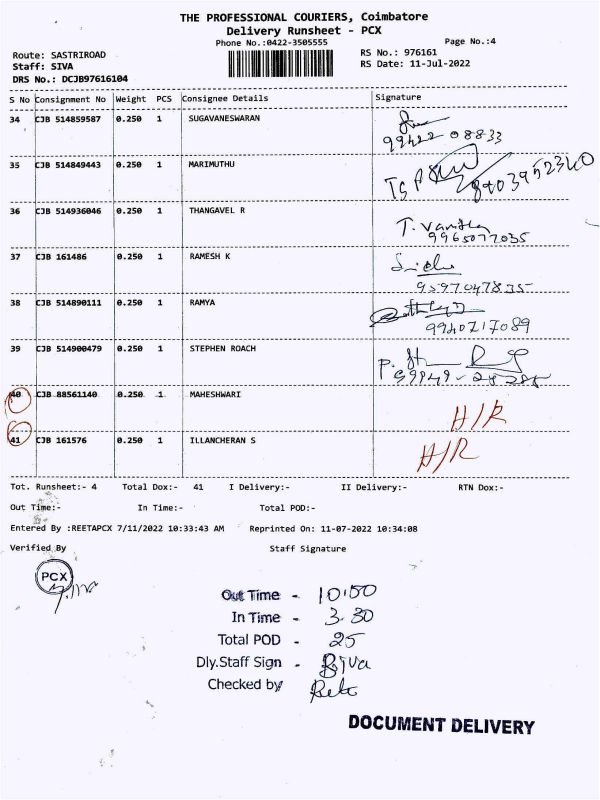 THE PROFESSIONAL COURIERS, Coimbatore
Delivery Runsheet - PCX
Phone No.:0422-3505555 Page No.:4
Route: SASTRIROAD RS No.: 976161
Staff: SIVA RS Date: 11-Jul-2022
DRS No.: DCJB97616104
S No Consignment No Weight PCS Consignee Details Signature
34 CJB 514859587 0.250 1 SUGAVANESWARAN
99422 08833
35 CJB 514849443 0.250 1 MARIMUTHU
8903952340
36 CJB 514936046 0.250 1 THANGAVEL R T.
9965077035
37 CJB 161486 0.250 1 RAMESH K
9597047835
38 CJB 514890111 0.250 1 RAMYA
9940717089
39 CJB 514900479 0.250 1 STEPHEN ROACH P.
40 CJB 88561140 0.250 1 MAHESHWARI H/R
41 CJB 161576 0.250 1 ILLANCHERAN S H/R
Tot. Runsheet:- 4 Total Dox:- 41 I Delivery:- II Delivery:- RTN Dox:-
Out Time:- In Time:- Total POD:-
Entered By :REETAPCX 7/11/2022 10:33:43 AM Reprinted On: 11-07-2022 10:34:08
Verified By Staff Signature
PCX
Out Time - 10:50
In Time - 3.30
Total POD - 25
Dly.Staff Sign - Siva
Checked by
DOCUMENT DELIVERY